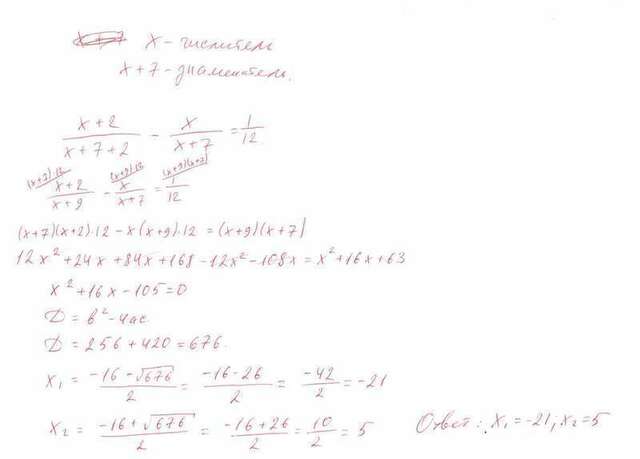 x - числитель
x + 7 - знаменатель.
(x+2)/(x+7+2) - x/(x+7) = 1/12
(x+7)·12 (x+9)·12 (x+9)(x+7)
(x+2)/(x+9) - x/(x+7) = 1/12
(x+7)(x+2)·12 - x(x+9)·12 = (x+9)(x+7)
12x² + 24x + 84x + 168 - 12x² - 108x = x² + 16x + 63
x² + 16x - 105 = 0
D = b² - 4ac
D = 256 + 420 = 676.
x₁ = (-16 - √676)/2 = (-16 - 26)/2 = -42/2 = -21
x₂ = (-16 + √676)/2 = (-16 + 26)/2 = 10/2 = 5
Ответ: x₁ = -21; x₂ = 5